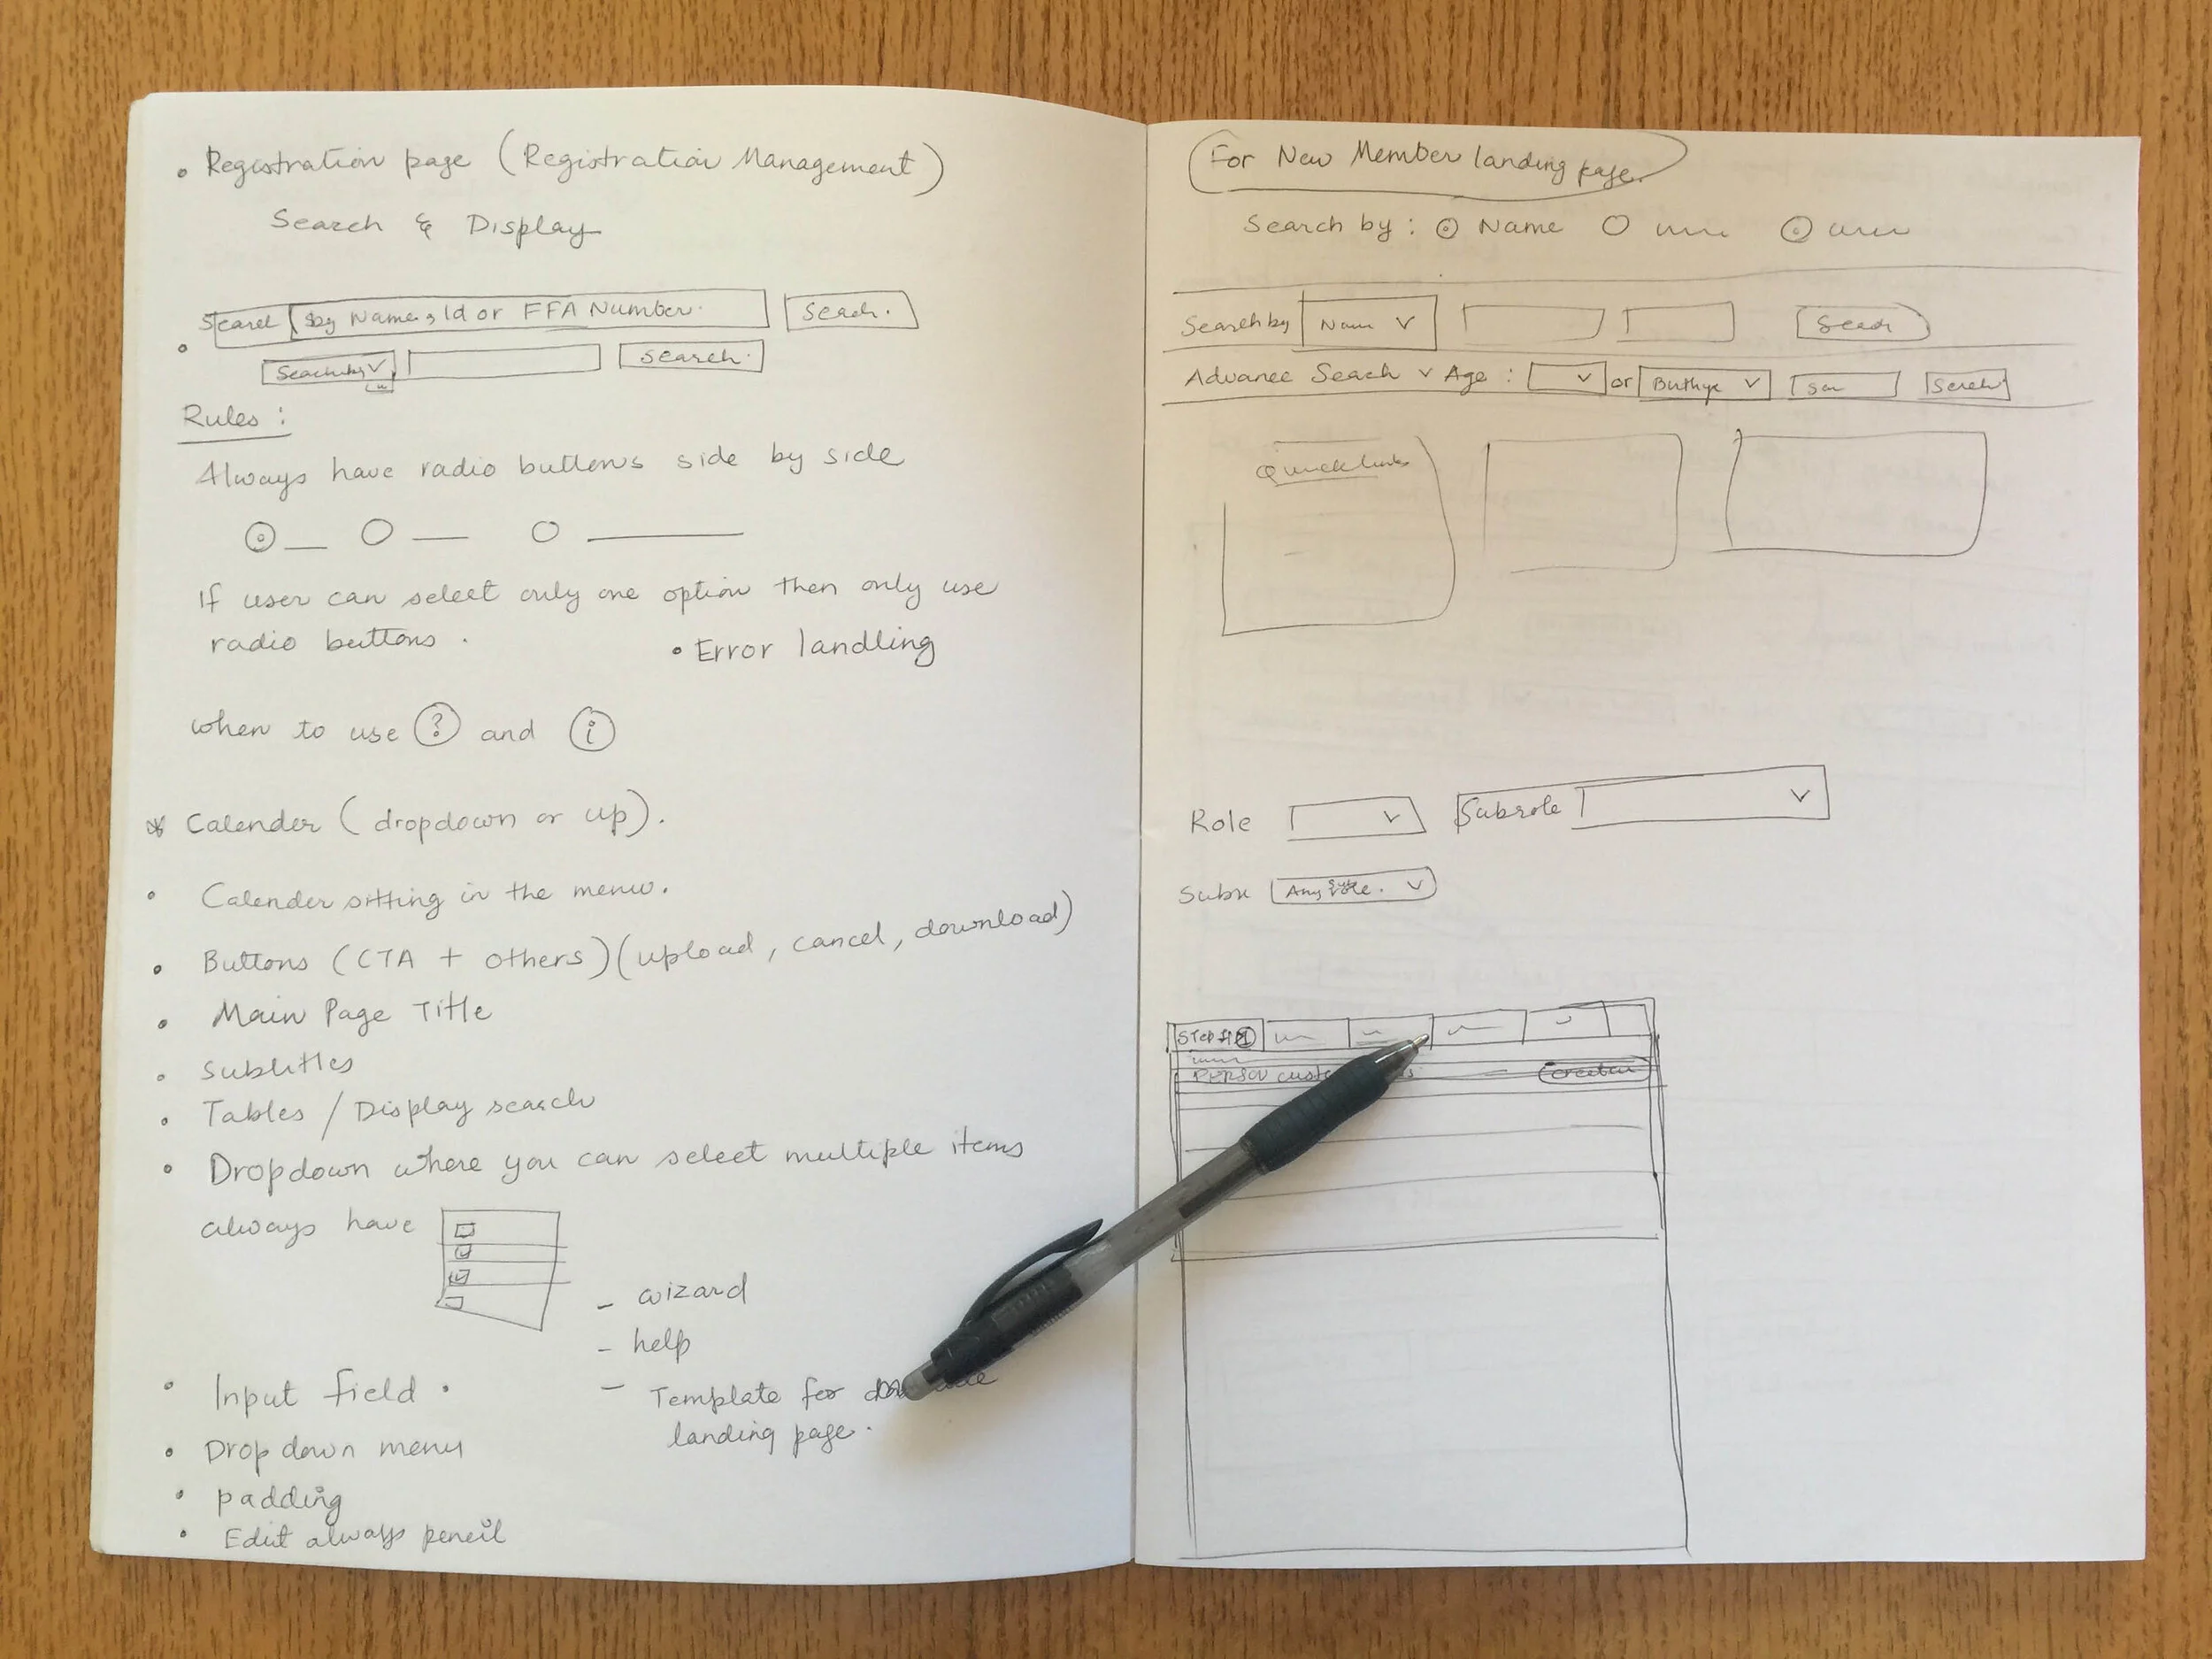 • Registration page (Registration Management)
Search & Display
Search by Name, Id or FFA Number. Seach.
• Seach by Search.
Rules :
Always have radio buttons side by side
If user can select only one option then only use
radio buttons .
• Error landling
when to use ? and i
* Calender ( dropdown or up).
• Calender sitting in the menu.
• Buttons (CTA + others) (upload, cancel, download)
• Main Page Title
• Subtitles
• Tables / Display search
• Dropdown where you can select multiple items
always have
- wizard
- help
- Template for
landing page.
• Input field .
• Drop down menu
• padding
• Edit always pencil
For New Member landing page.
Search by : Name
Search by Name Seach
Advance Seach v Age : or Search
Quick links
Role Subrole
Subr Any role.
STEP #1
PERSON